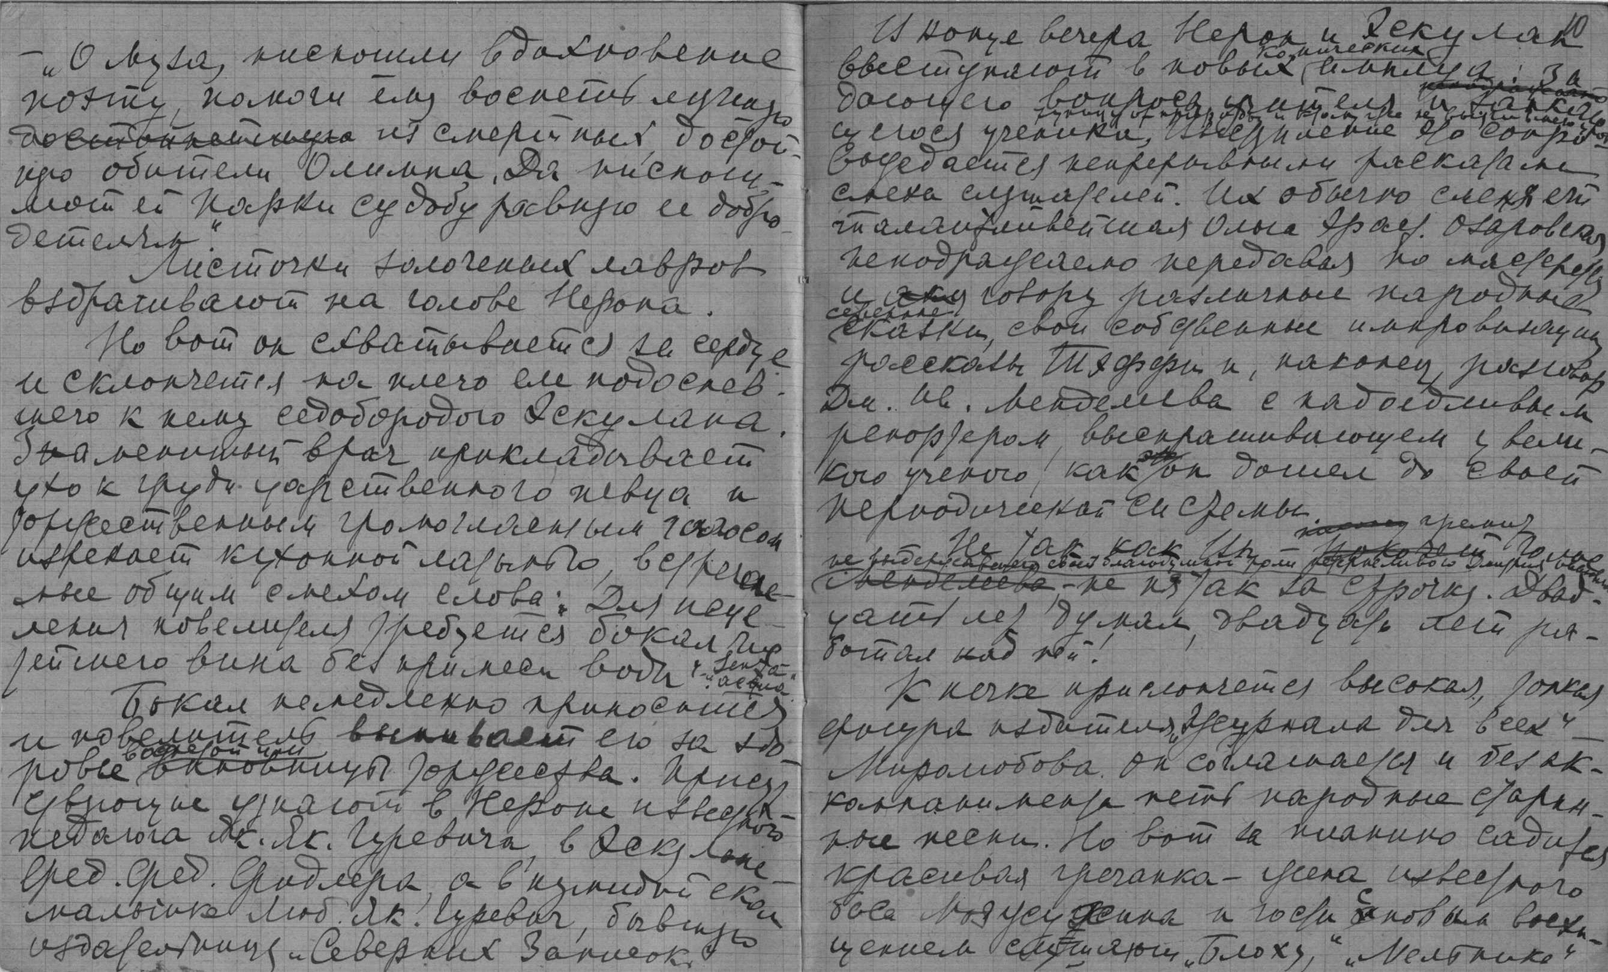 — „О муза, ниспошли вдохновение
поэту, помоги ему воспеть лучшую
достойнейшую из смертных, достой-
ную обители Олимпа. Да ниспош-
лют ей Парки судьбу равную ее добро-
детелям“.
Листочки золоченых лавров
вздрагивают на голове Нерона.
Но вот он схватывается за сердце
и склоняется на плечо еле подоспев-
шего к нему седобородого Эскулапа.
Знаменитый врач прикладывает
ухо к груди царственного певца и
торжественным громогласным голосом
изрекает кухонной латынью, встречен-
ные общим смехом слова: „Для исце-
ления повелителя требуется бокал чис-
тейшего вина без примеси воды
Бокал немедленно приносится
и повелитель выпивает его за здо-
ровье виновницы торжества. Присут-
ствующие узнают в Нероне известного
педагога Як. Як. Гуревича, в Эскулапе
Фед. Фед. Фидлера, а в
Люб. Як. Гуревич, бывшую
издательницу „Северных Записок“
10
И конце вечера Нерон и Эскулап
комическим
выступают в новых амплуа: за
дающего вопросы учителя и заика-
ющегося ученика,
вождается непрерывными раскатами
смеха слушателей. Их обычно сменяет
талантливейшая Ольга Эраст. Озаровская,
неподражаемо передавая по мастерству
и говору различные народные
северные
сказки, свои собственные импровизации,
рассказы Тэффи и, наконец, разговор
Дм. Ив. Менделеева с надоедливым
репортером, выспрашивающем у вели-
кого ученого, как он дошел до своей
периодической системы.
гремит
Не так как Вы
Менделеева — не пятак за строчку. Двад-
цать лет думал, двадцать лет ра-
ботал над ней!
К печке прислоняется высокая, тонкая
фигура издателя „Журнала для всех“ —
Миролюбова. Он соглашается и без ак-
компанимента петь народные старин-
ные песни. Но вот за пианино садится
красивая гречанка — жена известного
баса и гости с новым восхи-
щением слушают „Блоху“, „Мельника“